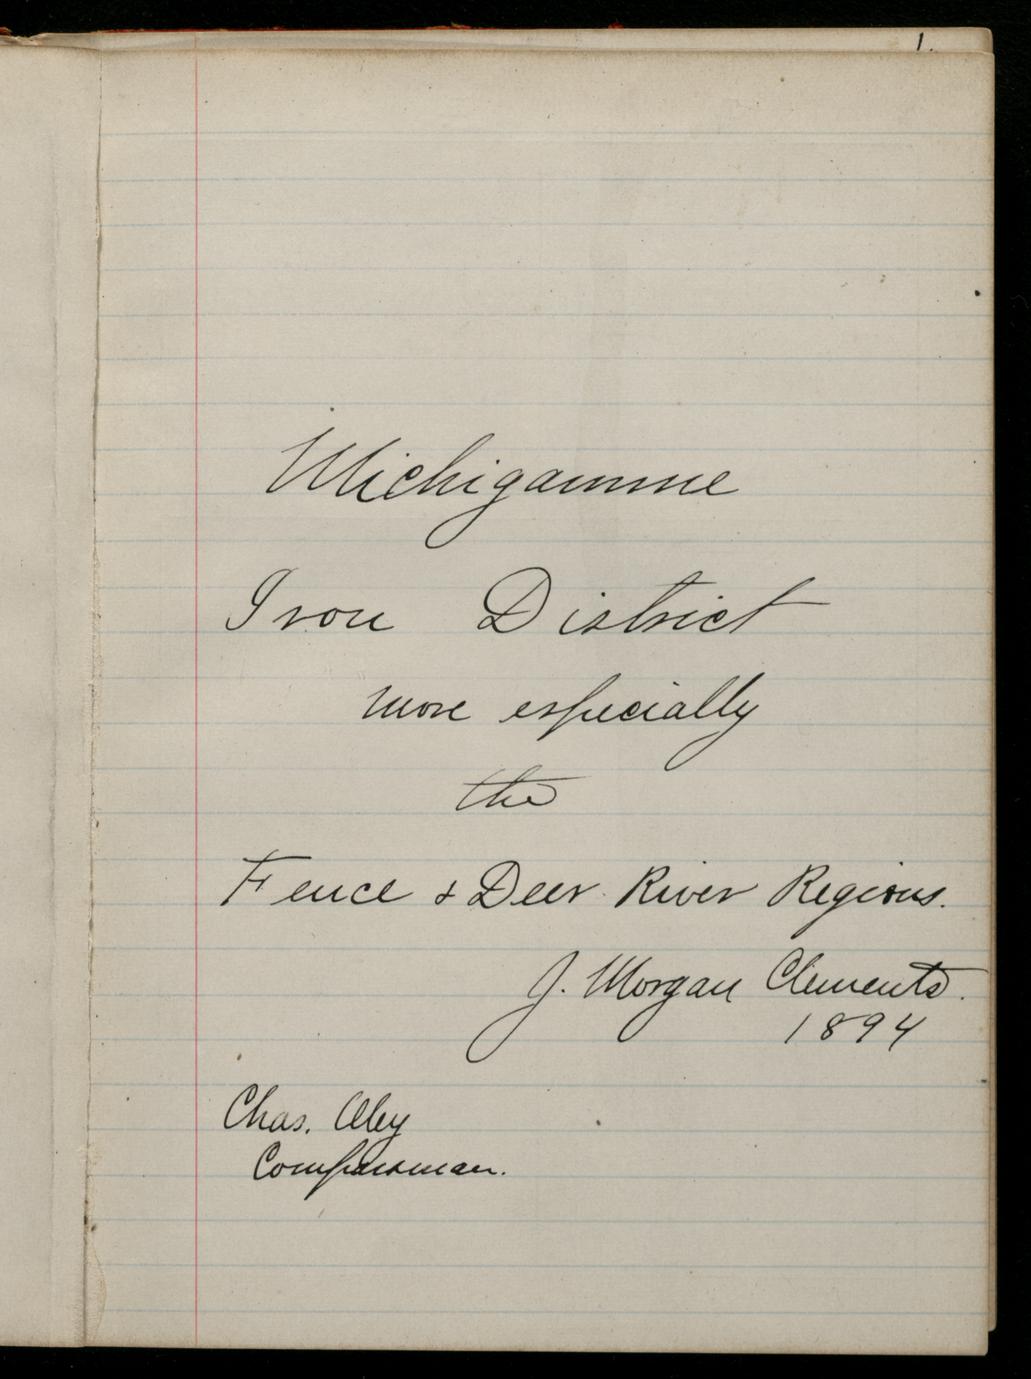 1.
Michigamme
Iron District
more especially
the
Fence & Deer River Regions.
J. Morgan Clements.
1894
Chas.
Compassman.